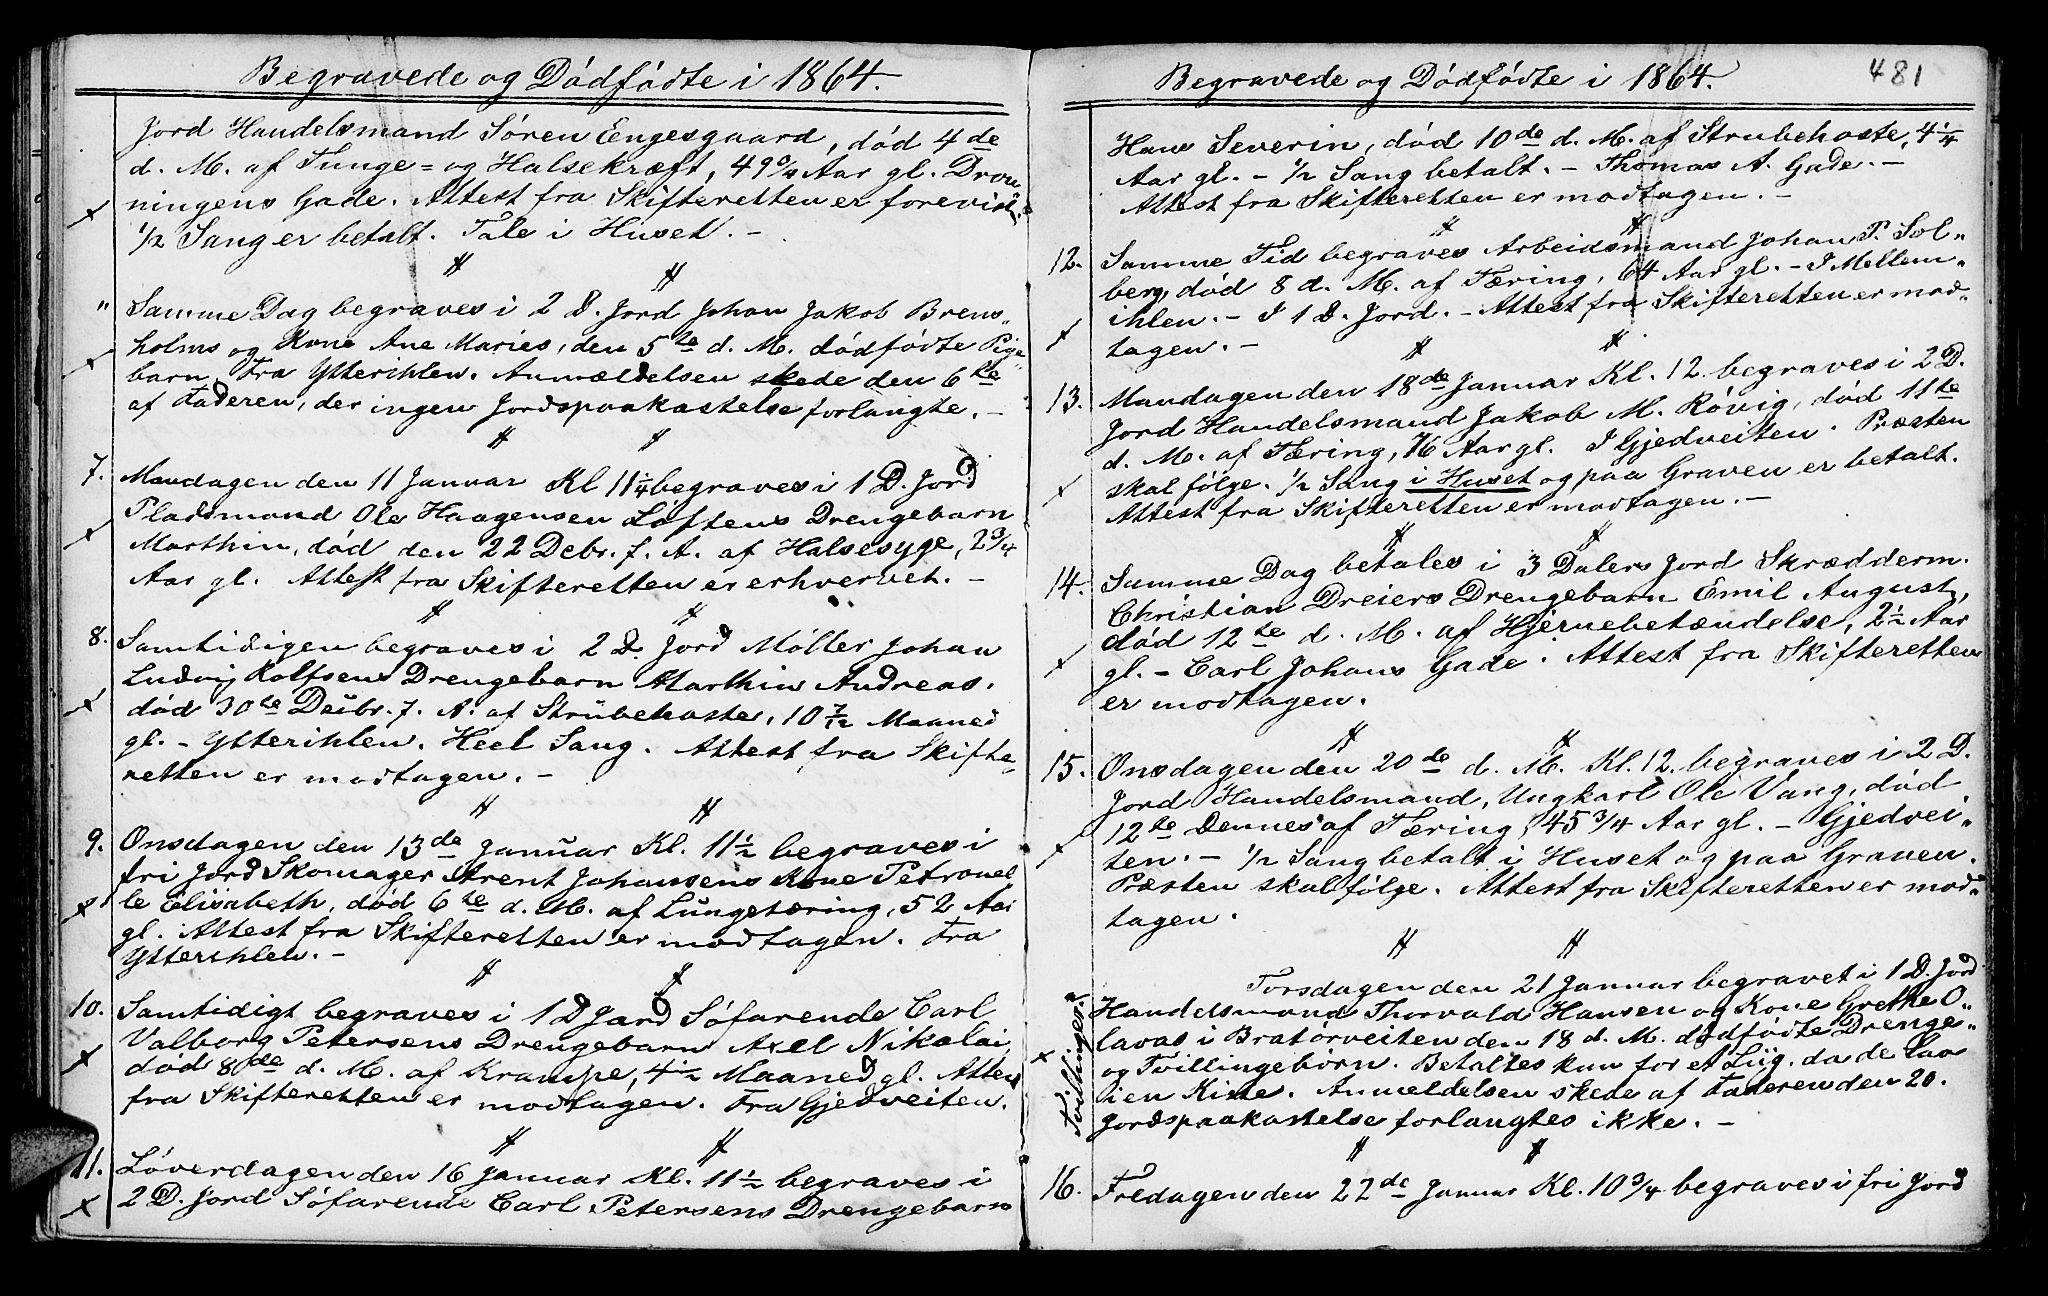 Begravede og Dødfødte i 1864.
Jord Handelsmand Sören Engesgaard, död 4de
d. M. af Tunge= og Halsekræft, 49 0/4 Aar gl. Dron„
ningens Gade. Attest fra Skifteretten er forevist.
1/2 Sang er betalt. Tale i Huset. –
" Samme Dag begraves i 2 D. Jord Johan Jakob Brens„
holms og Kone Ane Maries, den 5te d. M. dödfödte Pige„
barn. Fra Ytterihlen. Anmældelsen skede den 6te
af Faderen, der ingen Jordspaakastelse forlangte. –
7. Mandagen den 11 Januar Kl 11 1/4 begraves i 1 D. Jord
Pladsmand Ole Haagensen Loftens Drengebarn
Marthin, död den 22 Debr. f. A. af Halsesyge, 2 3/4
Aar gl. Attest fra Skifteretten er erhvervet. –
8. Samtidigen begraves i 2 D. Jord Möller Johan
Ludvig Rolfsens Drengebarn Marthin Andreas.
död 30te Deibr. f. A. af Strubehoste, 10 7/12 Maaned
gl. – Ytterihlen. Heel Sang. Attest fra Skifte„
retten er modtagen. –
9. Onsdagen den 13de Januar Kl. 11 1/2 begraves i
fri Jord Skomager Arent Johansens Kone Petronel
le Elisabeth, död 6te d. M. af Lungetæring, 52 Aar
gl. Attest fra Skifteretten er modtagen. Fra
Ytterihlen. –
10. Samtidigt begraves i 1 D Jord Söfarende Carl
Valborg Petersens Drengebarn Axel Nikolai,
död 8de d. M. af Krampe, 4 1/2 Maaned gl. Attest
fra Skifteretten er modtagen. Fra Gjedveiten.
11. Löverdagen den 16 Januar Kl. 11 1/2 begraves i
2 D. Jord Söfarende Carl Petersens Drengebarn
Begravede og Dødfødte i 1864.
481
Hans Severin, död 10de d. M. af Strubehoste, 4 1/4
Aar gl. – 1/2 Sang betalt. – Thomas A. Gade. –
Attest fra Skifteretten er modtagen. –
12. Samme Tid begraves Arbeidsmand Johan P. Sol„
berg, död 8 d. M. af Tæring, 64 Aar gl. – I Mellem„
ihlen. – I 1 D. Jord. – Attest fra Skifteretten er mod„
tagen. –
13. Mandagen den 18de Januar Kl. 12 begraves i 2 D.
Jord Handelsmand Jakob M. Rövig, död 11te
d. M. af Tæring, 76 Aar gl. I Gjedveiten. Præsten
skal fölge. 1/2 Sang i Huset og paa Graven er betalt.
Attest fra Skifteretten er modtagen. –
14. Samme Dag betales i 3 Dalers Jord Skrædderm.
Christian Dreiers Drengebarn Emil August,
död 12te d. M. af Hjernebetændelse, 2 1/2 Aar
gl. – Carl Johans Gade. Attest fra Skifteretten
er modtagen.
15. Onsdagen den 20de d. M. Kl. 12. begraves i 2 D.
Jord Handelsmand, Ungkarl Ole Vang, död
12te Dennes af Tæring, 45 3/4 Aar gl. – Gjedvei„
ten. – 1/2 Sang betalt i Huset og paa Graven.
Præsten skal fölge. Attest fra Skifteretten er mod„
tagen.
Tvillinger.
Torsdagen den 21 Januar begravet i 1 D. Jord
Handelsmand Thorvald Hansen og Kone Grethe O„
lavas i Bratörveiten den 18 d. M. dödfödte Drenge„
og Tvillingebörn. Betaltes kun for et Liig, da de laae
i en Kiste. Anmeldelsen skede af Faderen den 20.
Jordspaakastelse forlangtes ikke. –
16. Fredagen den 22de Januar Kl. 10 3/4 begraves i fri Jord